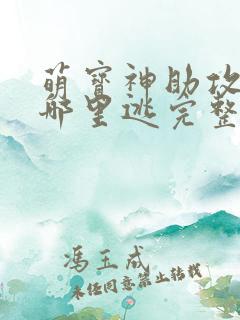 萌宝神助攻
哪里逃完整
冯玉成
未经同意禁止转载